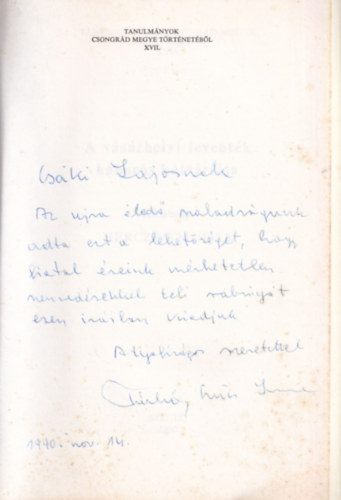 TANULMÁNYOK
CSONGRÁD MEGYE TÖRTÉNETÉBŐL
XVII.
Csáki Lajosnak
Az ujra éledő szabadságunk
adta ezt a lehetőséget, hogy
fiatal éveink mérhetetlen
szenvedésekkel teli rabságát
ezen írásban kiadjuk
szeretettel
1990. nov. 14.